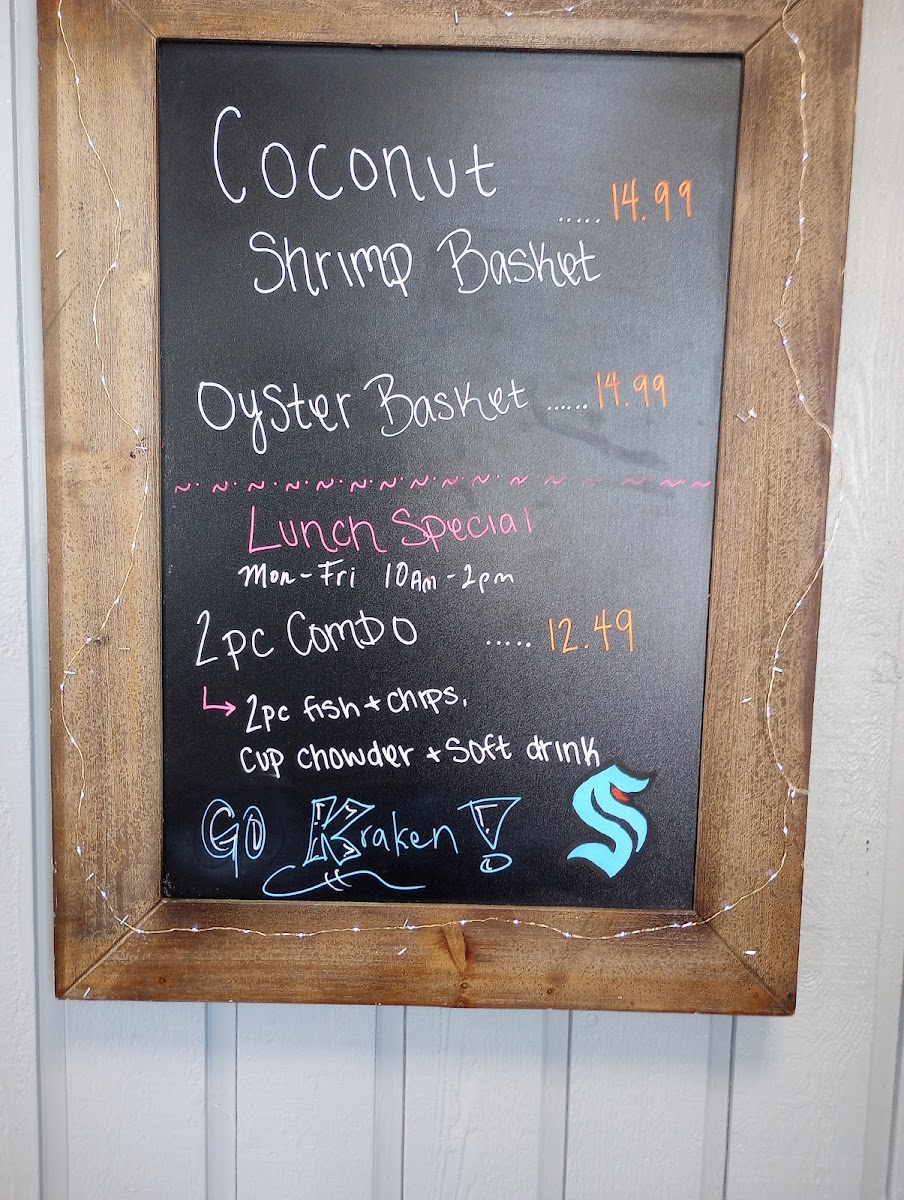 Coconut
..... 14.99
Shrimp Basket
Oyster Basket ...... 14.99
Lunch Special
Mon - Fri 10Am - 2pm
2pc Combo ..... 12.49
2pc fish + chips,
cup chowder + soft drink
Go Kraken!